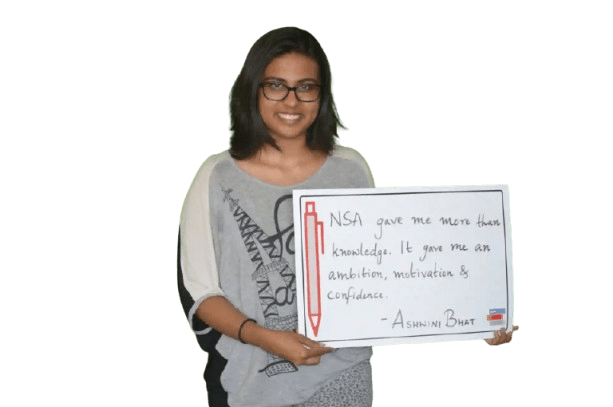 NSA gave me more than
knowledge. It gave me an
ambition, motivation &
confidence.
- ASHWINI BHAT